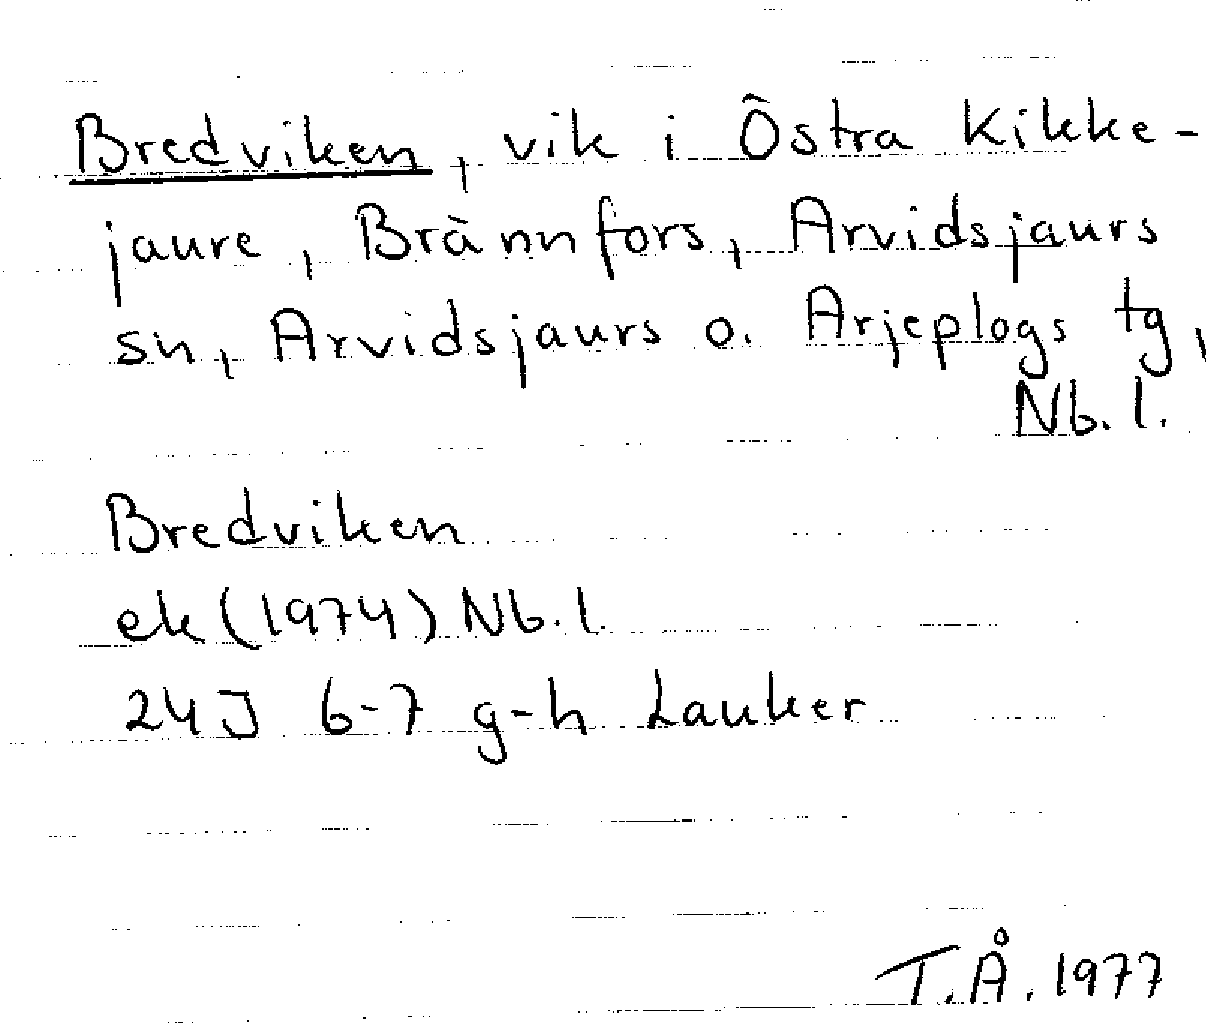 Bredviken, vik i Östra Kikke-
jaure, Brännfors, Arvidsjaurs
sn, Arvidsjaurs o. Arjeplogs tg,
Nb. l.
Bredviken
ek (1974) Nb. l.
24J 6-7 g-h Lauker
T.Å. 1977